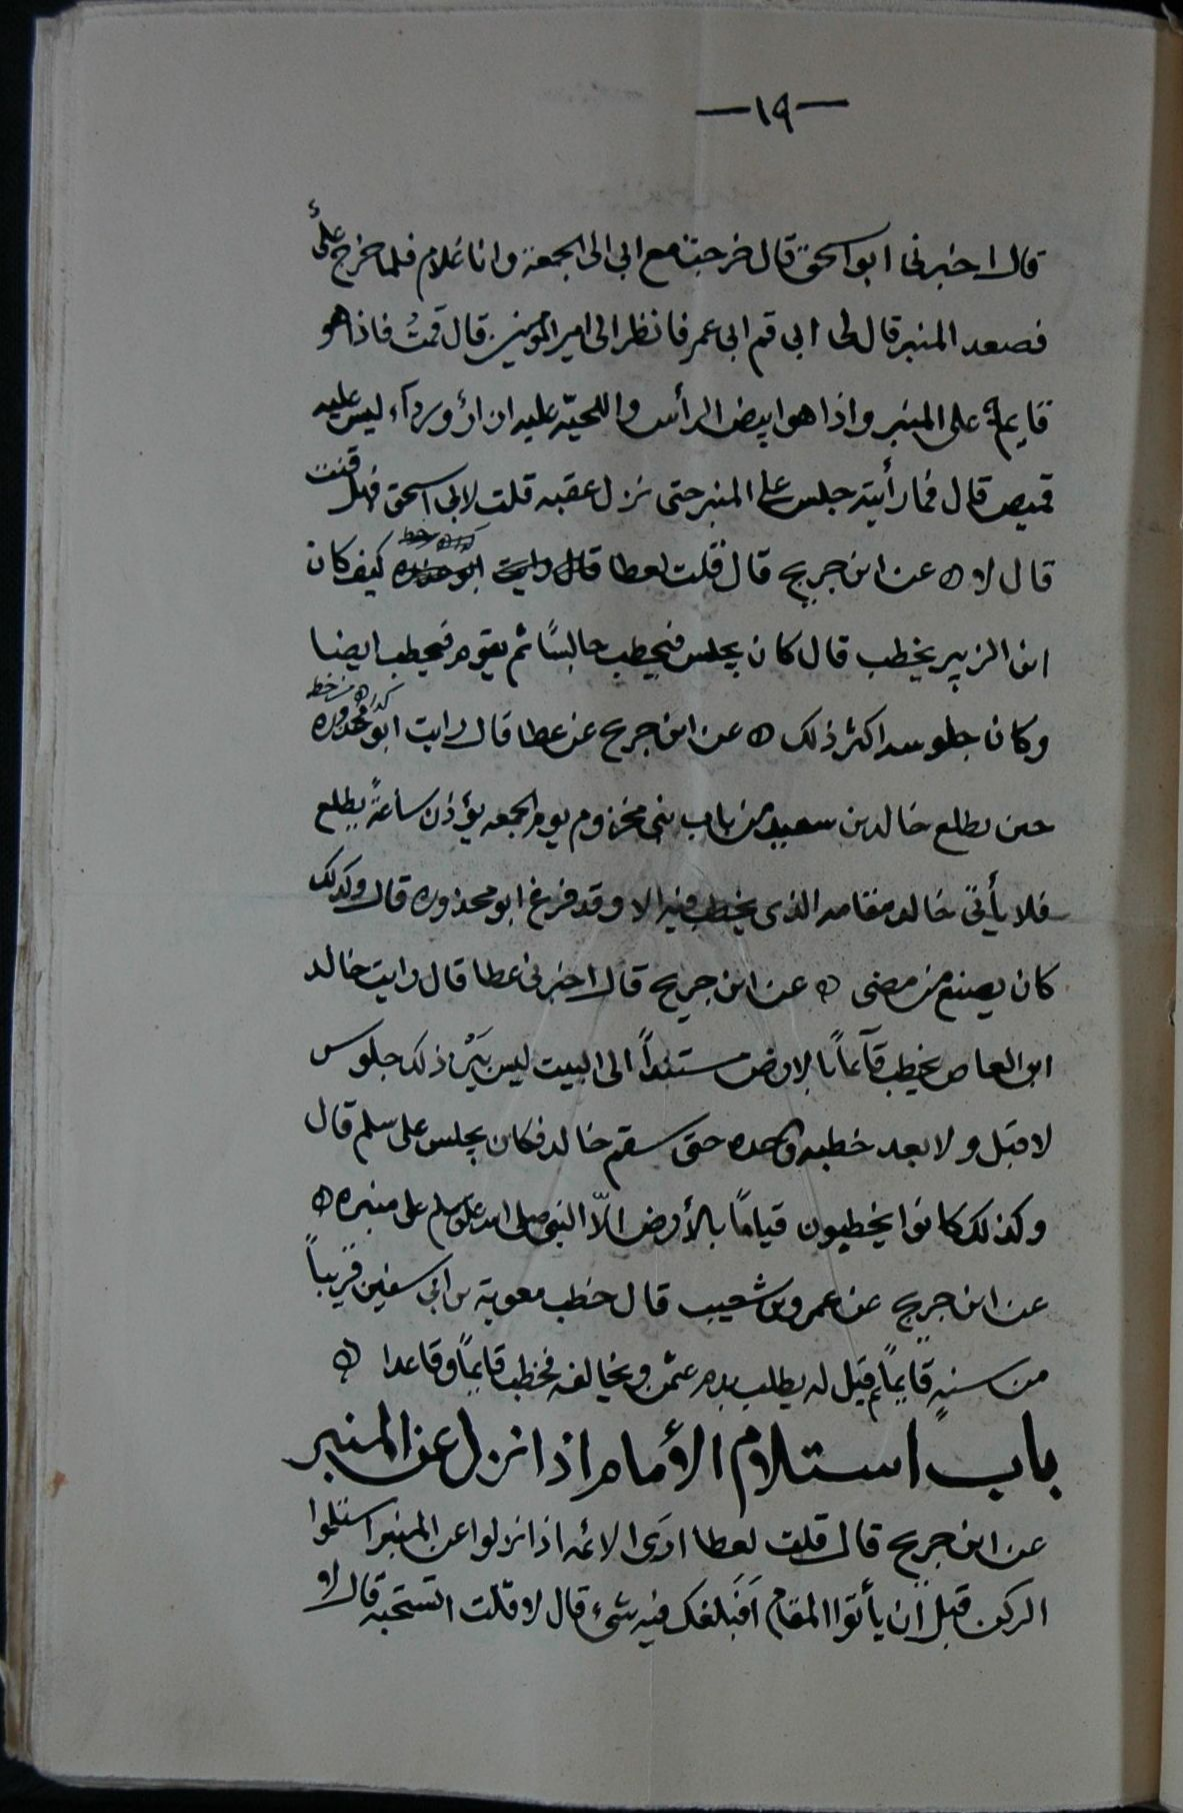 —١٩—
قال اخبرنى ابو اسحق قال خرجت مع ابى الى الجمعة وانا غلام فلما خرج علىٌّ
فصعد المنبر قال لى ابى قم اى عمر فانظر الى امير المومنين قال قمتُ فاذا هو
قايم على المنبر واذا هو ابيض الرأس واللحيّه عليه ازارٌ ورداء ليس عليه
قميص قال فما رأيته جلس على المنبر حتى نزل عقبه قلت لابى اسحق فهل قنت
قال لا ه عن ابن جريج قال قلت لعطا كيف كان
ابن الزبير يخطب قال كان يجلس فيخطب جالسًا ثم يقوم فيخطب ايضا
وكان جلوسه اكثر ذلك ه عن ابن جريج عن عطا قال رايت ابو محذوره
حين يطلع خالد بن سعيد من باب بنى مخزوم يوم الجمعه يؤذن ساعةً يطلع
فلا يأتى خالد مقامه الذى يخطب فيه الا وقد فرغ ابو محذوره قال وكذلك
كان يصنع من مضى ه عن ابن جريج قال اخبرنى عطا قال رايت خالد
ابن العاص يخطب قآئماً بالارض مستنداً الى البيت ليس بَيْن ذلك جلوس
لا قبل ولا بعد خطبه واحده حتى سقم خالد فكان يجلس على سلم قال
وكذلك كانوا يخطبون قياماً بالأرض الّا النبى صلى الله عليه وسلم على منبره ه
عن ابن جريج عن عمرو بن شعيب قال خطب معوية بن ابى سفين قريباً
من سنهٍ قايماً ثم قيل له يطلب بدم عثمن ويخالفه فخطب قايماً وقاعدا ه
باب استلام الأمام اذا نزل عن المنبر
عن ابن جريج قال قلت لعطا ارَى الائمه اذا نزلوا عن المنبر استلموا
الركن قبل ان يأتوا المقام اَفَبلغك فيه شىء قال لا قلت اتستحبه قال لا